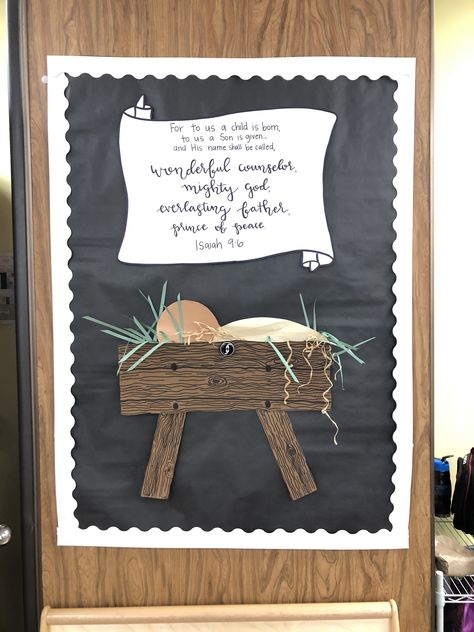 For to us a child is born,
to us a Son is given...
and His name shall be called,
wonderful counselor,
mighty god,
everlasting father,
prince of peace
Isaiah 9:6